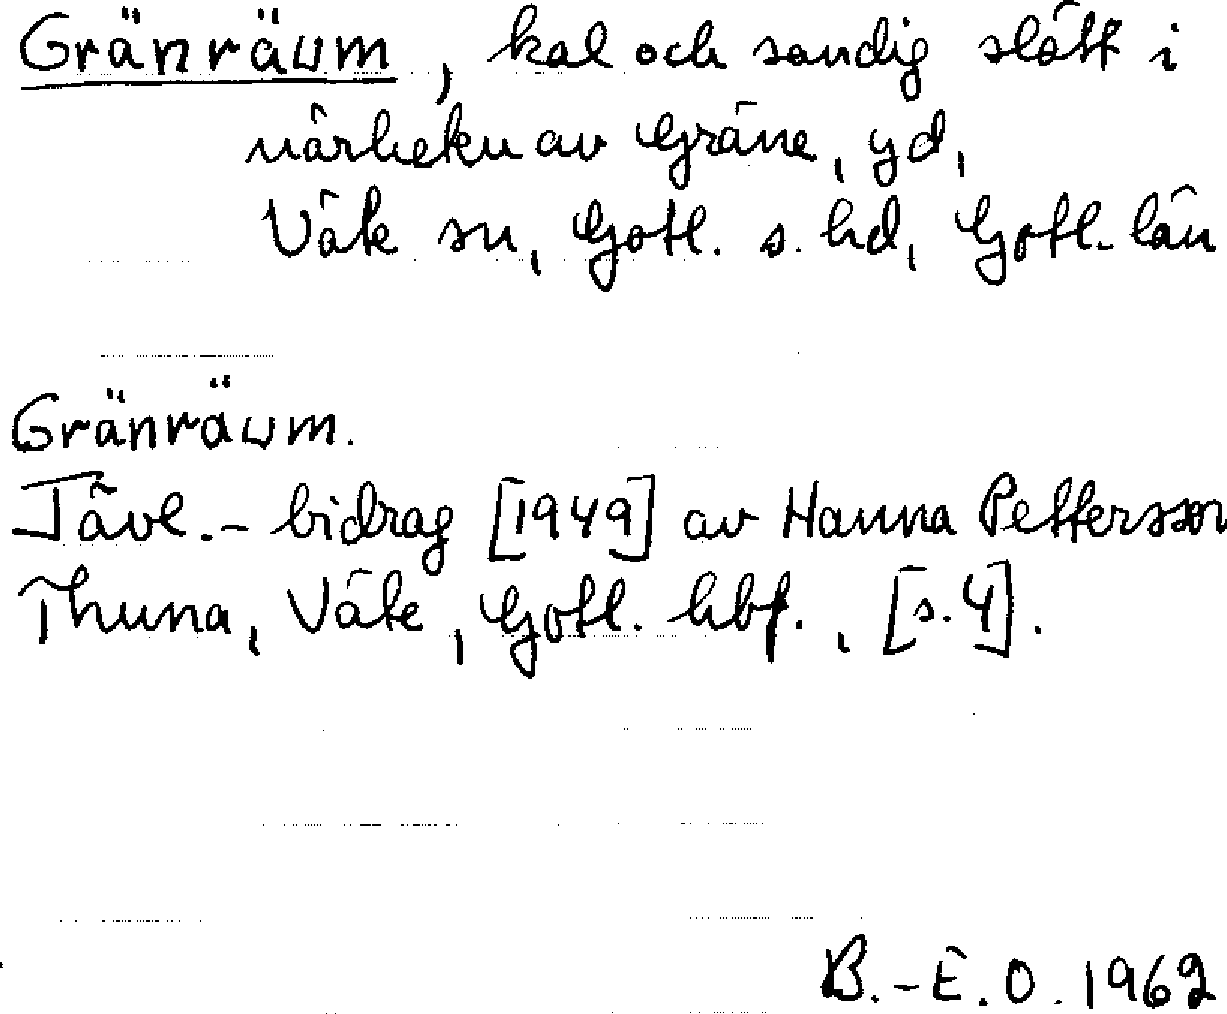 Gränräum, kal och sandig slätt i
närheten av Gräne, gd,
Väte sn, Gotl. s. hd, Gotl. län
Gränräum.
Tävl.-bidrag [1949] av Hanna Pettersson
Thuna, Väte, Gotl. hbf., [s. 4].
B.-E.O. 1962